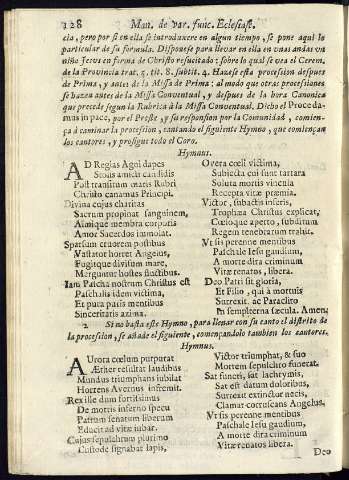 128 Man. de var. func. Eclesiast.
cia, pero por si en ella se introduxere en algun tiempo, se pone aqui lo
particular de su formula. Disponese para llevar en ella en unas andas un
niño Jesus en forma de Christo resucitado; sobre lo qual se vea el Cerem.
de la Provincia trat. 3. tit. 8. subtit. 4. Hazese esta procesion despues
de Prima, y antes de la Missa de Prima; al modo que otras procesiones
se hazen antes de la Missa Conventual, y despues de la hora Canonica
que precede segun la Rubrica à la Missa Conventual. Dicho el Proceda-
mus in pace, por el Preste, y su responsion por la Comunidad, comien-
ça à caminar la procesion, cantando el siguiente Hymno, que comiençan
los cantores, y prosigue todo el Coro.
Hymnus.
AD Regias Agni dapes
Stolis amicti candidis
Post transitum maris Rubri
Christo canamus Principi.
Divina cujus charitas
Sacrum propinat sanguinem,
Almique membra corporis
Amor Sacerdos immolat.
Sparsum cruorem postibus
Vastator horret Angelus,
Fugitque divisum mare,
Merguntur hostes fluctibus.
Iam Pascha nostrum Christus est
Paschalis idem victima,
Et pura puris mentibus
Sinceritatis azima.
O vera cœli victima,
Subjecta cui sunt tartara
Soluta mortis vincula
Recepta vitæ præmia.
Victor, subactis inferis,
Trophæa Christus explicat,
Cœloque aperto, subditum
Regem tenebrarum trahit.
Vt sis perenne mentibus
Paschale Iesu gaudium,
A morte dira criminum
Vitæ renatos, libera.
Deo Patri sit gloria,
Et Filio, qui à mortuis
Surrexit, ac Paraclito
In sempiterna sæcula. Amen.
2 Si no basta este Hymno, para llenar con su canto el distrito de
la procesion, se añade el siguiente, començandolo tambien los cantores.
Hymnus.
AUrora cœlum purpurat
Æther resultat laudibus
Mundus triumphans jubilat
Horrens Avernus infremit.
Rex ille dum fortissimus
De mortis inferno specu
Patrum senatum liberum
Educit ad vitæ jubar.
Cujus sepulchrum plurimo
Custode signabat lapis,
Victor triumphat, & suo
Mortem sepulchro funerat.
Sat funeri, sat lachrymis,
Sat est datum doloribus,
Surrexit extinctor necis,
Clamat corruscans Angelus.
Vt sis perenne mentibus
Paschale Iesu gaudium,
A morte dira criminum
Vitæ renatos libera.
Deo